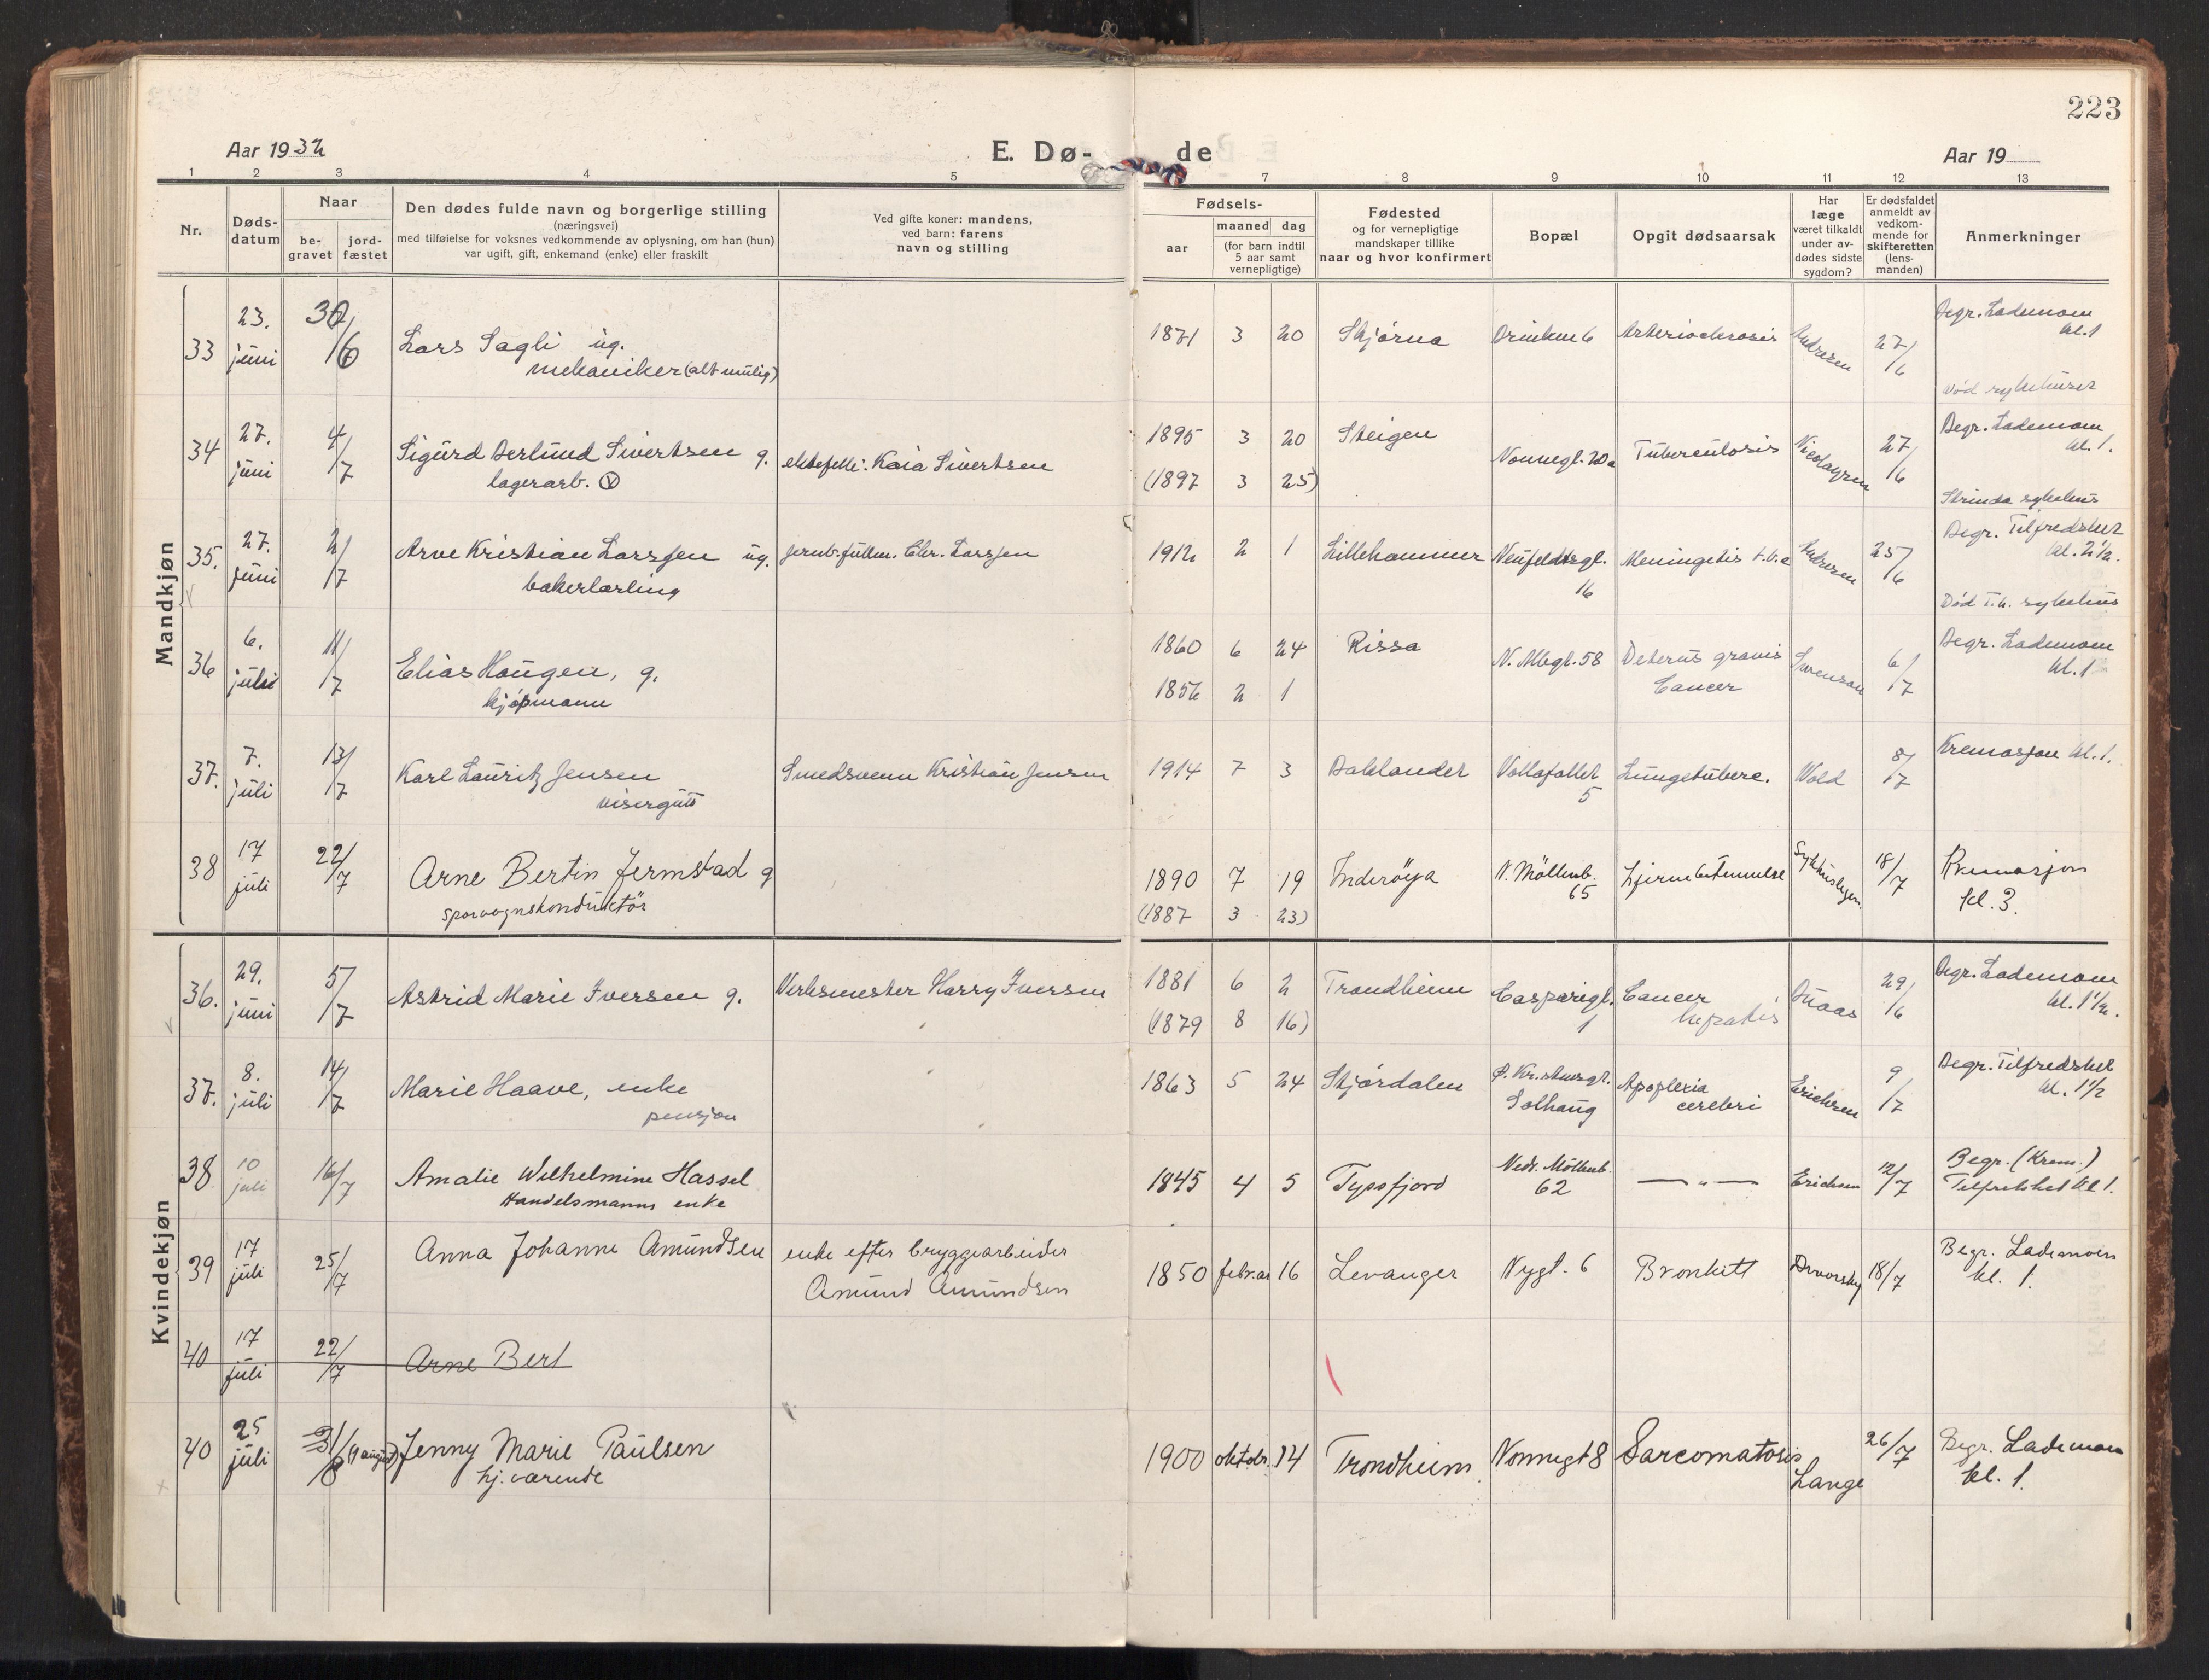 223
Aar 1932
E. Dø-
de
Aar 19
1 2 3 4 5 7 8 9 10 11 12 13
Nr.
Døds-
datum
Naar
be-
gravet
jord-
fæstet
Den dødes fulde navn og borgerlige stilling
(næringsvei)
med tilføielse for voksnes vedkommende av oplysning, om han (hun)
var ugift, gift, enkemand (enke) eller fraskilt
Ved gifte koner: mandens,
ved barn: farens
navn og stilling
Fødsels-
aar
maaned dag
(for barn indtil
5 aar samt
vernepligtige)
Fødested
og for vernepligtige
mandskaper tillike
naar og hvor konfirmert
Bopæl
Opgit dødsaarsak
Har
læge
været tilkaldt
under av-
dødes sidste
sygdom?
Er dødsfaldet
anmeldt av
vedkom-
mende for
skifteretten
(lens-
manden)
Anmerkninger
Mandkjøn
33
23.
juni
30/6
Lars Sagli ug.
mekaniker (alt mulig)
1871 3 20
Stjørna
Arteriosclerosis
Andresen
27/6
Begr. Lademoen
kl. 1
Død sykehuset
34
27.
juni
4/7
Sigurd Berlund Sivertsen g.
lagerarb.
ektefelle: Kaia Sivertsen
1895 3 20
(1897 3 25)
Steigen
Nonnegt. 20a
Tuberculosis
Nicolaysen
27/6
Begr. Lademoen
kl. 1.
Strinda sykehus
35.
27.
juni
2/7
Arve Kristian Larssen ug.
bakerlærling
jernb.fullm. Chr. Larssen
1912 2 1
Lillehammer
Neufeldtsgt.
16
Meningitis t.b.c
Andresen
25/6
Begr. Tilfredshet
kl. 2½.
Død T.h. sykehus
36
6.
juli
11/7
Elias Haugen, g.
kjøpmann
1860 6 24
1856 2 1
Rissa
N. Mbgt. 58
gravis
Cancer
Sørensen
6/7
Begr. Lademoen
kl. 1
37.
7.
juli
13/7
Karl Lauritz Jensen
visergutt
Smedsvenn Kristian Jensen
1914 7 3
Baklandet
Vollafallet
5
Lungetuberc.
Vold
8/7
Kremasjon kl. 1.
38
17
juli
22/7
Arne Bertin Jermstad g
sporvognskonduktør
1890 7 19
(1887 3 23)
Inderøya
N. Möllenb.
65
Hjernebetennelse
18/7
Kremasjon
kl. 3.
Kvindekjøn
36.
29.
juni
5/7
Astrid Marie Iversen g.
Verksmester Harry Iversen
1881 6 2
(1879 8 16)
Trondheim
Casparigt.
1
Cancer
hepatis
29/6
Begr. Lademoen
kl. 1½.
37.
8.
juli
14/7
Marie Haave, enke
pensjon
1863 5 24
Stjørdalen
Solhaug
Apoplexia
cerebri
Erichsen
9/7
Begr. Tilfredshet
kl. 1½
38
10
juli
16/7
Amalie Wilhelmine Hassel
Handelsmanns enke
1845 4 5
Tyssfjord
Nedr. Möllenb.
62
— " —
Erichsen
12/7
Begr. (Krem.)
Tilfredshet kl 1.
39
17
juli
25/7
Anna Johanne Amundsen
enke efter bryggearbeider
Amund Amundsen
1850 februar 16
Levanger
Nygt. 6
Bronkitt
Dworsky
18/7
Begr. Lademoen
kl. 1.
40
17
juli
22/7
Arne Bert
40
25
juli
Jenny Marie Paulsen
hj.værende
1900 oktobr. 14
Trondheim
Nonnegt 8
Sarcomatosis
Lange
26/7
Begr. Lademoen
kl. 1.